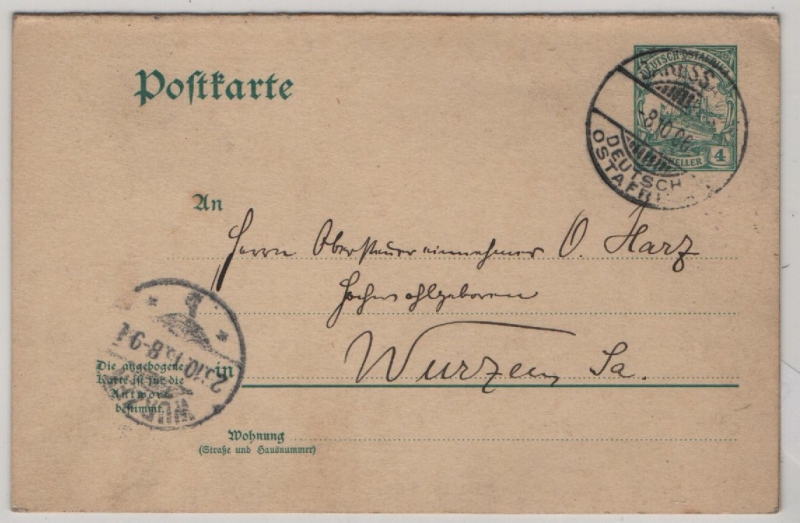 Postkarte
DEUTSCH-OSTAFRIKA
4
HELLER
DARESS
-8.10.06
DEUTSCH
OSTAFRI
An
Herrn Obersteuereinnehmer O. Harz
Hochwohlgeboren
in Wurzen, Sa.
Die angebogene
Karte ist für die
Antwort
bestimmt.
Wohnung
(Straße und Hausnummer)